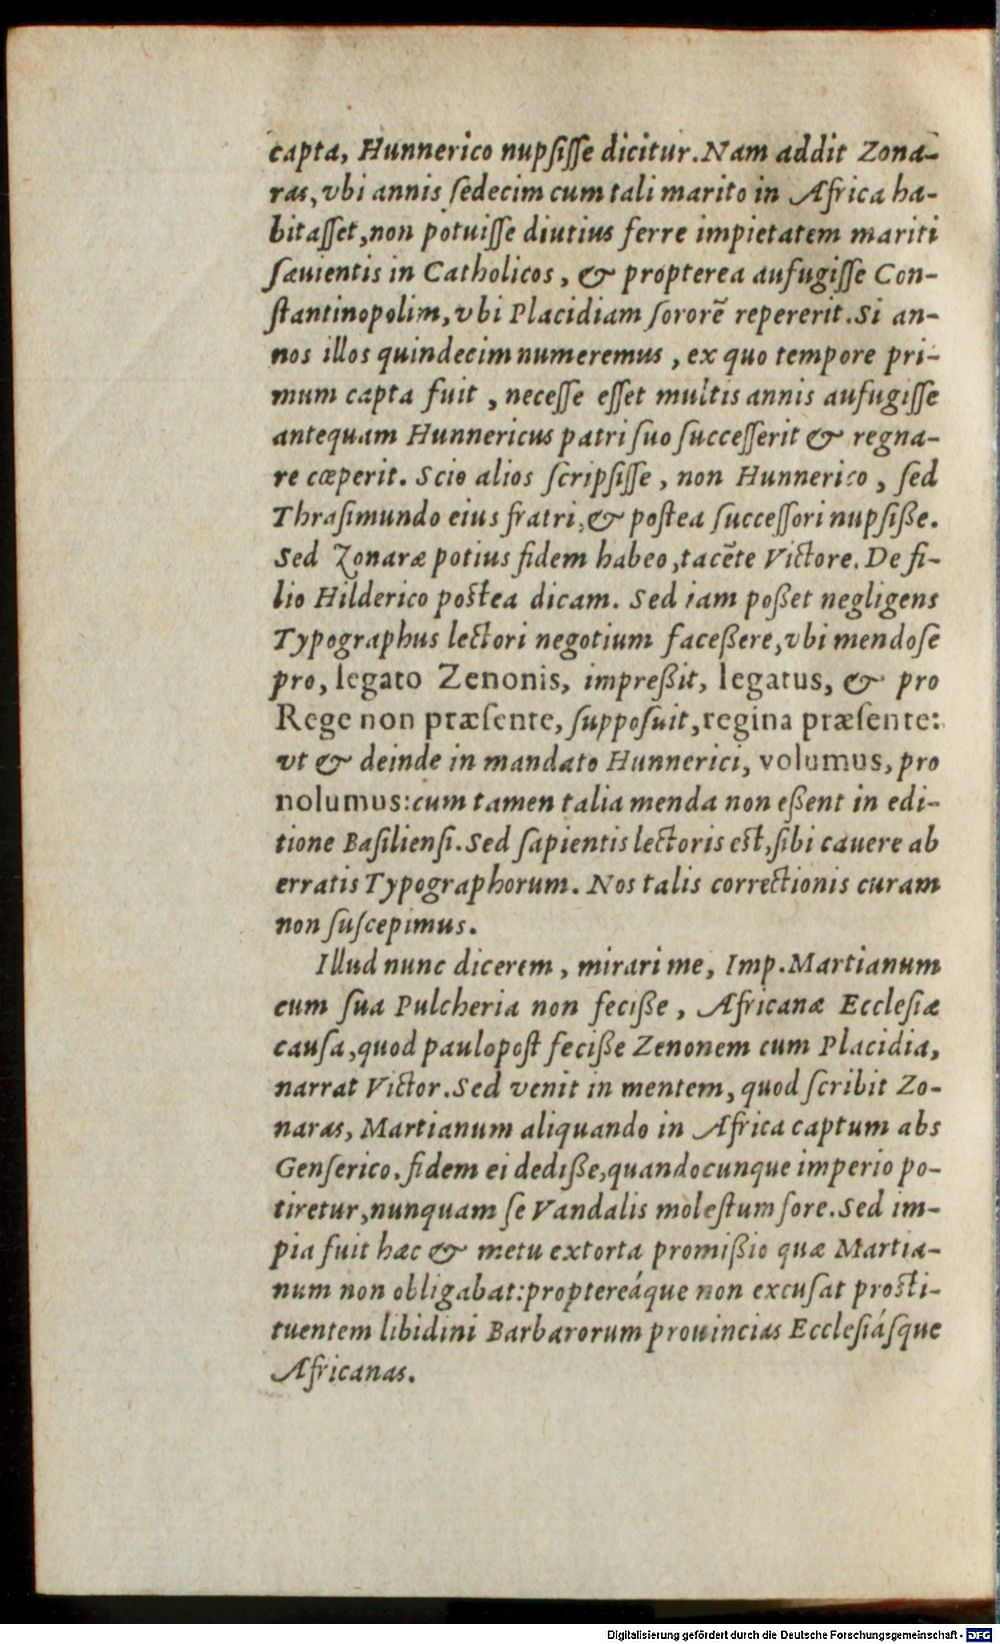 capta, Hunnerico nupſiſſe dicitur. Nam addit Zona-
ras, vbi annis ſedecim cum tali marito in Africa ha-
bitaſſet, non potuiſſe diutius ferre impietatem mariti
ſæuientis in Catholicos, & propterea aufugiſſe Con-
ſtantinopolim, vbi Placidiam ſororē repererit. Si an-
nos illos quindecim numeremus, ex quo tempore pri-
mum capta fuit, neceſſe eſſet multis annis aufugiſſe
antequam Hunnericus patri ſuo ſucceſſerit & regna-
re cœperit. Scio alios ſcripſiſſe, non Hunnerico, ſed
Thraſimundo eius fratri, & poſtea ſucceſſori nupſiße.
Sed Zonaræ potius fidem habeo, tacēte Victore. De fi-
lio Hilderico poſtea dicam. Sed iam poßet negligens
Typographus lectori negotium faceßere, vbi mendoſe
pro, legato Zenonis, impreßit, legatus, & pro
Rege non præſente, ſuppoſuit, regina præſente:
vt & deinde in mandato Hunnerici, volumus, pro
nolumus: cum tamen talia menda non eßent in edi-
tione Baſilienſi. Sed ſapientis lectoris eſt, ſibi cauere ab
erratis Typographorum. Nos talis correctionis curam
non ſuſcepimus.
Illud nunc dicerem, mirari me, Imp. Martianum
cum ſua Pulcheria non feciße, Africanæ Eccleſiæ
cauſa, quod paulopoſt feciße Zenonem cum Placidia,
narrat Victor. Sed venit in mentem, quod ſcribit Zo-
naras, Martianum aliquando in Africa captum abs
Genſerico, fidem ei dediße, quandocunque imperio po-
tiretur, nunquam ſe Vandalis moleſtum fore. Sed im-
pia fuit hæc & metu extorta promißio quæ Martia-
num non obligabat: proptereáque non excuſat proſti-
tuentem libidini Barbarorum prouincias Eccleſiáſque
Africanas.
Digitalisierung gefördert durch die Deutsche Forschungsgemeinschaft - DFG